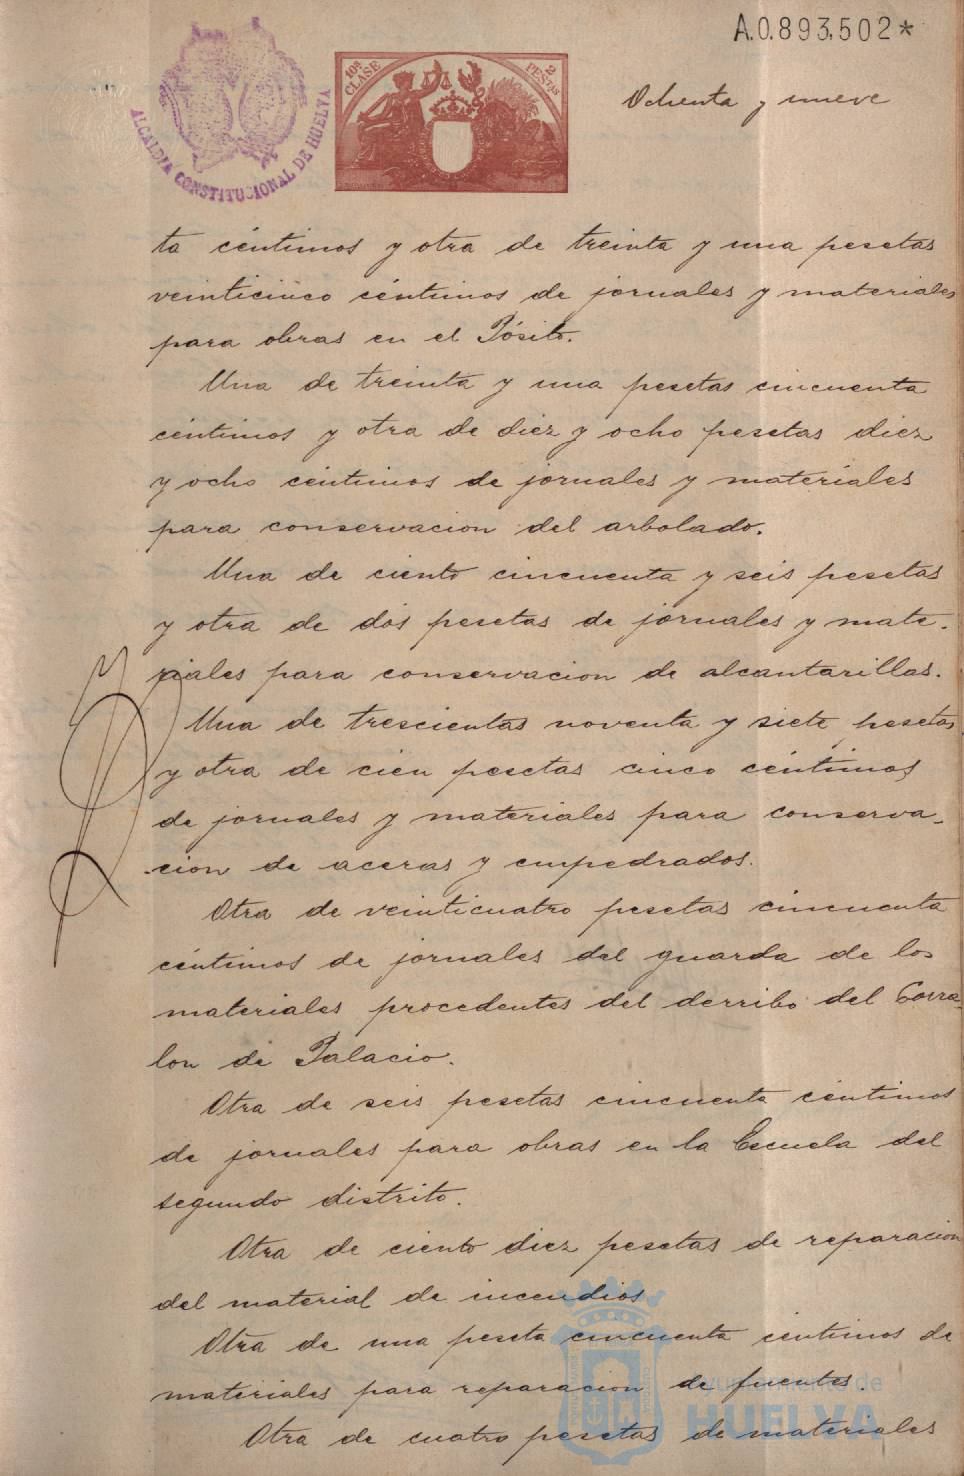 A.0.893,502*
ALCALDIA CONSTITUCIONAL DE HUELVA
10ª CLASE
2 PESETAS
Ochenta y nueve
ta céntimos y otra de treinta y una pesetas
veinticinco céntimos de jornales y materiales
para obras en el Pósito.
Una de treinta y una pesetas cincuenta
céntimos y otra de diez y ocho pesetas diez
y ocho céntimos de jornales y materiales
para conservacion del arbolado.
Una de ciento cincuenta y seis pesetas
y otra de dos pesetas de jornales y mate-
riales para conservacion de alcantarillas.
Una de trescientas noventa y siete pesetas
y otra de cien pesetas cinco céntimos
de jornales y materiales para conserva-
cion de aceras y empedrados.
Otra de veinticuatro pesetas cincuenta
céntimos de jornales del guarda de los
materiales procedentes del derribo del Corra-
lon de Palacio.
Otra de seis pesetas cincuenta céntimos
de jornales para obras en la Escuela del
segundo distrito.
Otra de ciento diez pesetas de reparacion
del material de incendios
Otra de una peseta cincuenta centimos de
materiales para reparacion de fuentes.
Otra de cuatro pesetas de materiales
Ayuntamiento de
HUELVA